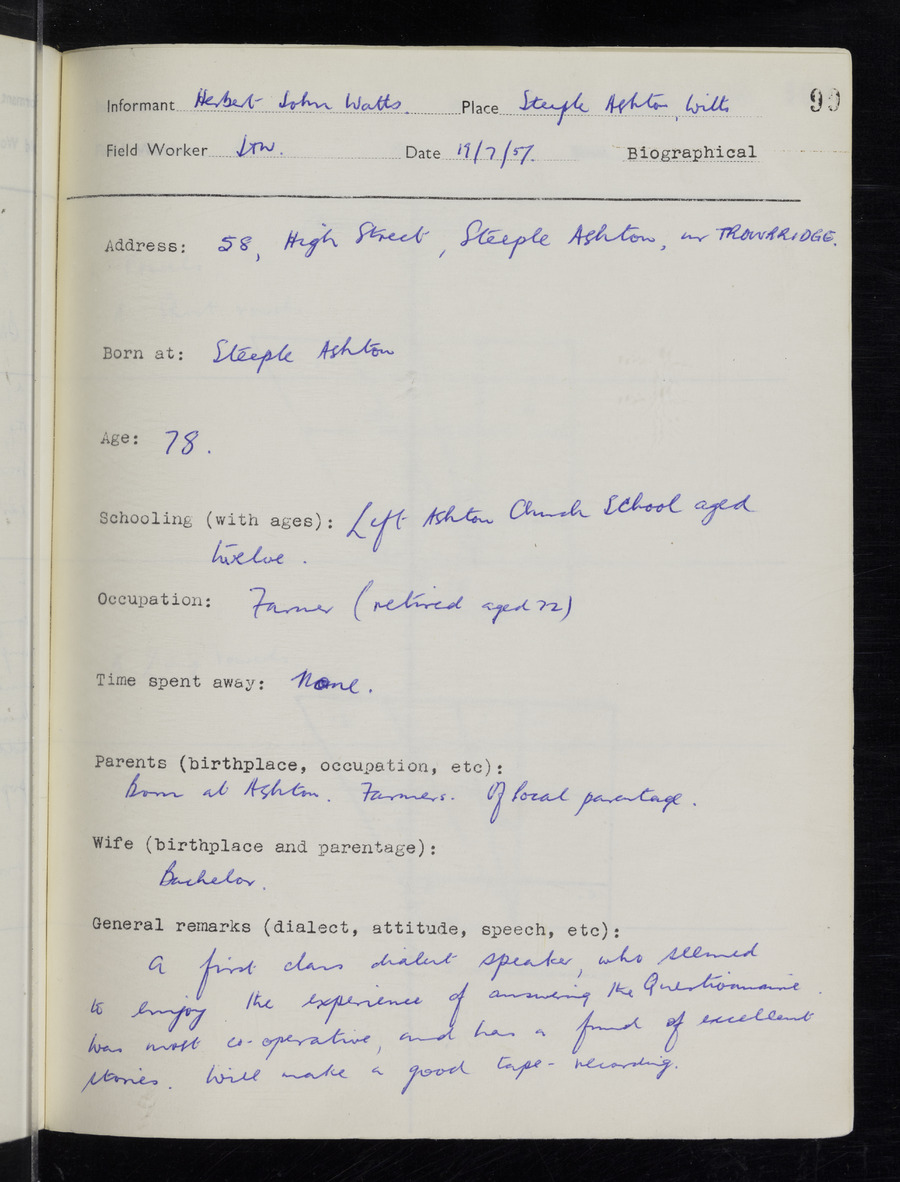 Informant Herbert John Watts. Place Steeple Ashton, Wilts 99
Field Worker Date 19/7/57. Biographical
Address: 58, High Street, Steeple Ashton, nr TROWBRIDGE.
Born at: Steeple Ashton
Age: 78.
Schooling (with ages): Left Ashton Church School aged
twelve.
Occupation: Farmer (retired aged 72)
Time spent away: None.
Parents (birthplace, occupation, etc):
Born at Ashton. Farmers. Of local parentage.
Wife (birthplace and parentage):
Bachelor.
General remarks (dialect, attitude, speech, etc):
A first class dialect speaker, who seemed
to enjoy the experience of answering the Questionnaire.
Was most co-operative, and has a fund of excellent
stories. Will make a good tape-recording.